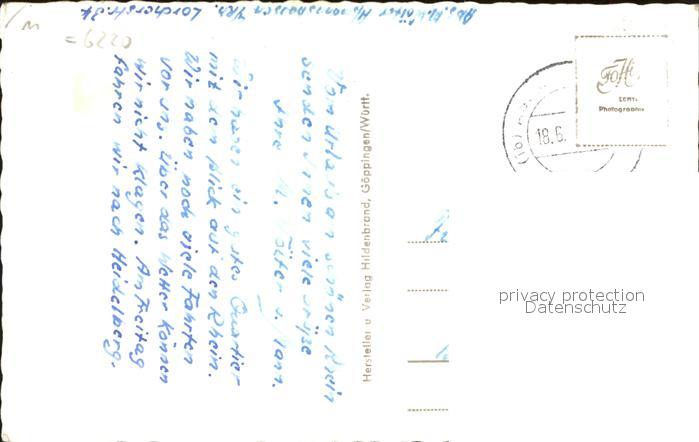 Abs. M. Wölfer Assmannshausen /Rh. Lorcherstr. 24
=6220
Vom Urlaub am schönen Rhein
senden Ihnen viele Grüße
Ihre M. Wölfer u. Mann.
Wir haben ein gutes Quartier
mit dem Blick auf den Rhein.
Wir haben noch viele Fahrten
vor uns. Über das Wetter können
wir nicht klagen. Am Freitag
fahren wir nach Heidelberg.
Hersteller u Verlag Hildenbrand, Göppingen/Württ.
(16)
18.6.
FoHi
ECHTE
Photographie
privacy protection
Datenschutz